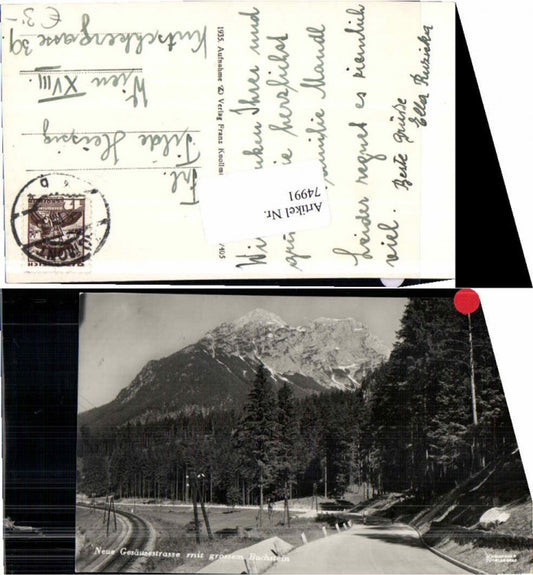 Wir denken Ihrer und
grüßen Sie herzlichst
Familie Mandl
Leider regnet es ziemlich
viel. Beste Grüße
Ella Ruzicka
1935 Aufnahme Verlag Franz Knollm
Artikel Nr.
74991
Frl.
Tilde
Wien XVIII.
Kutschkergasse 39
€ 3.-
Neue Gesäusestrasse mit grossem Buchstein